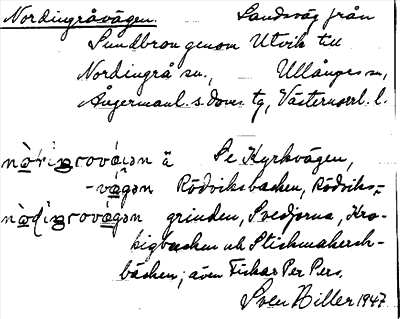 Nordingråvägen. Landsväg från
Sundbron genom Utvik till
Nordingrå sn., Ullångers sn,
Ångermanl. s. doms. tg, Västernorrl. l.
Se Kyrkvägen,
Rödviksbacken, Rödviks-
grinden, Svedjorna, Kro-
kigbacken och Stickmakersh-
bäcken; även Fiskar Per Pers.
Sven Hiller 1947